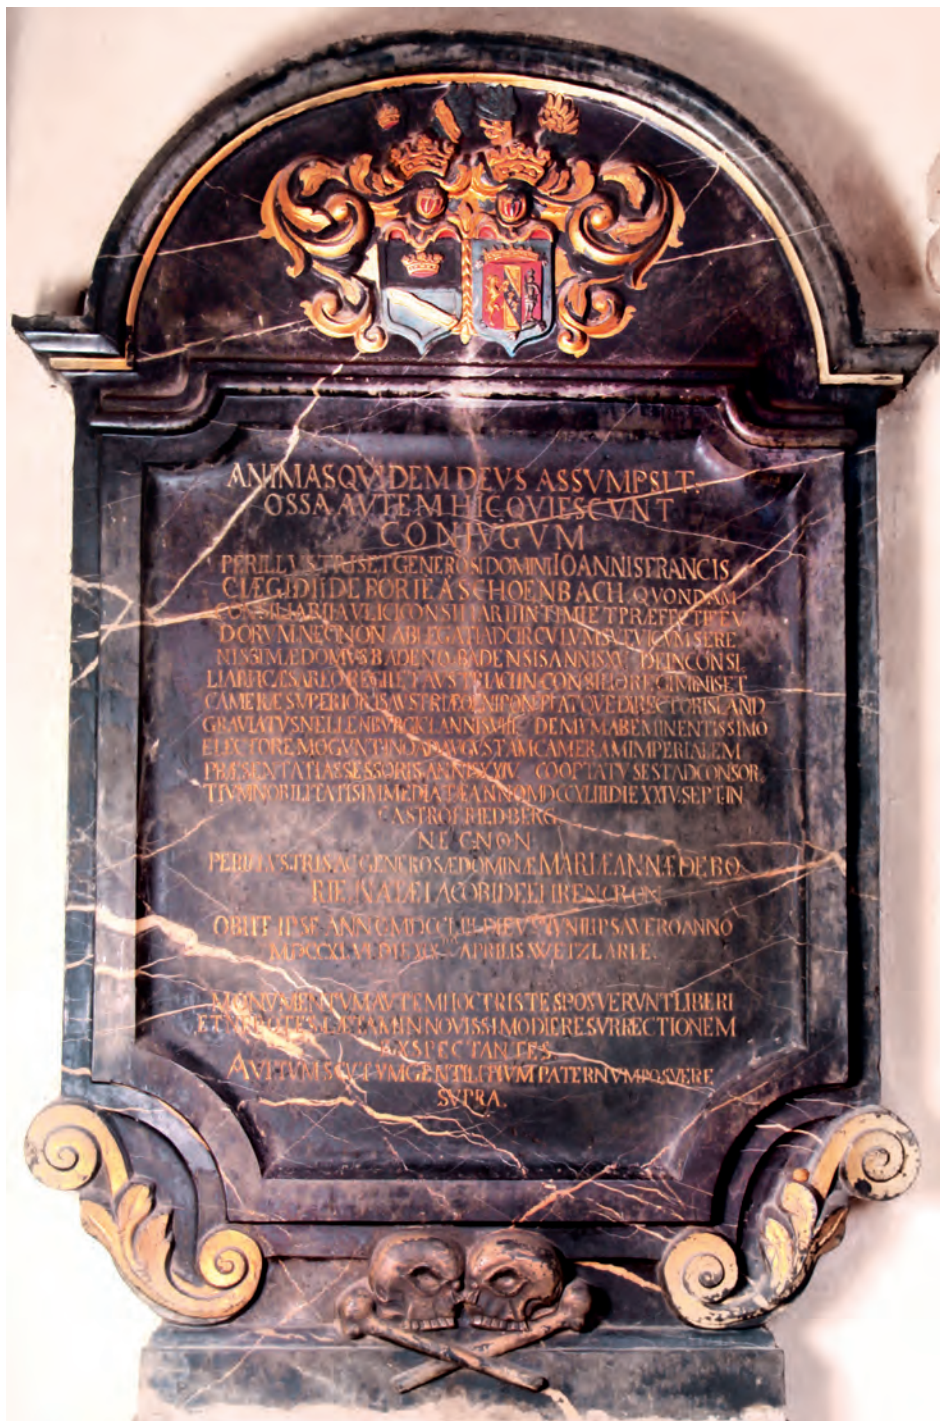 ANIMAS QVIDEM DEVS ASSVMPSIT.
OSSA AVTEM HIC QVIESCVNT
CONIVGVM
PERILLVSTRIS ET GENEROSI DOMINI IOANNIS FRANCIS
CI ÆGIDII DE BORIE A SCHOENBACH QVONDAM
CONSILIARII AVLICI CONSILIARII INTIMI ET PRÆFECTI FEV
DORVM NECNON ABLEGATI AD CIRCVLVM SVEVICVM SERE
NISSIMÆ DOMVS BADENO BADENSIS ANNIS XV. DEIN CONSI
LIARII CÆSAREO REGII ET AVSTRIACI IN CONSILIO REGIMINIS ET
CAMERÆ SVPERIORIS AVSTRIÆ OENIPONTI ATQVE DIRECTORIS LAND
GRAVIATVS NELLENBVRGICI ANNIS DEMVM AB EMINENTISSIMO
ELECTORE MOGVNTINO AD AVGVSTAM CAMERAM IMPERIALEM
PRÆSENTATI ASSESSORIS ANNIS XXIV COOPTATVS EST AD CONSOR
TIVM NOBILITATIS IMMEDIATÆ ANNO DIE XXIV. SEPT. IN
CASTRO FRIEDBERG
NECNON
PERILLVSTRIS AC GENEROSÆ DOMINÆ MARIÆ ANNÆ DE BO
RIE, NATÆ IACOBI DE EHRENCRON
OBIIT IPSE ANNO DIE IVNII IPSA VERO ANNO
DIE APRILIS WETZLARIÆ.
MONVMENTVM AVTEM HOC TRISTES POSVERVNT LIBERI
ET NEPOTES LÆTAM IN NOVISSIMO DIE RESVRRECTIONEM
EXSPECTANTES
AVITVM SCVTVM GENTILITIVM PATERNVM POSVERE
SVPRA.